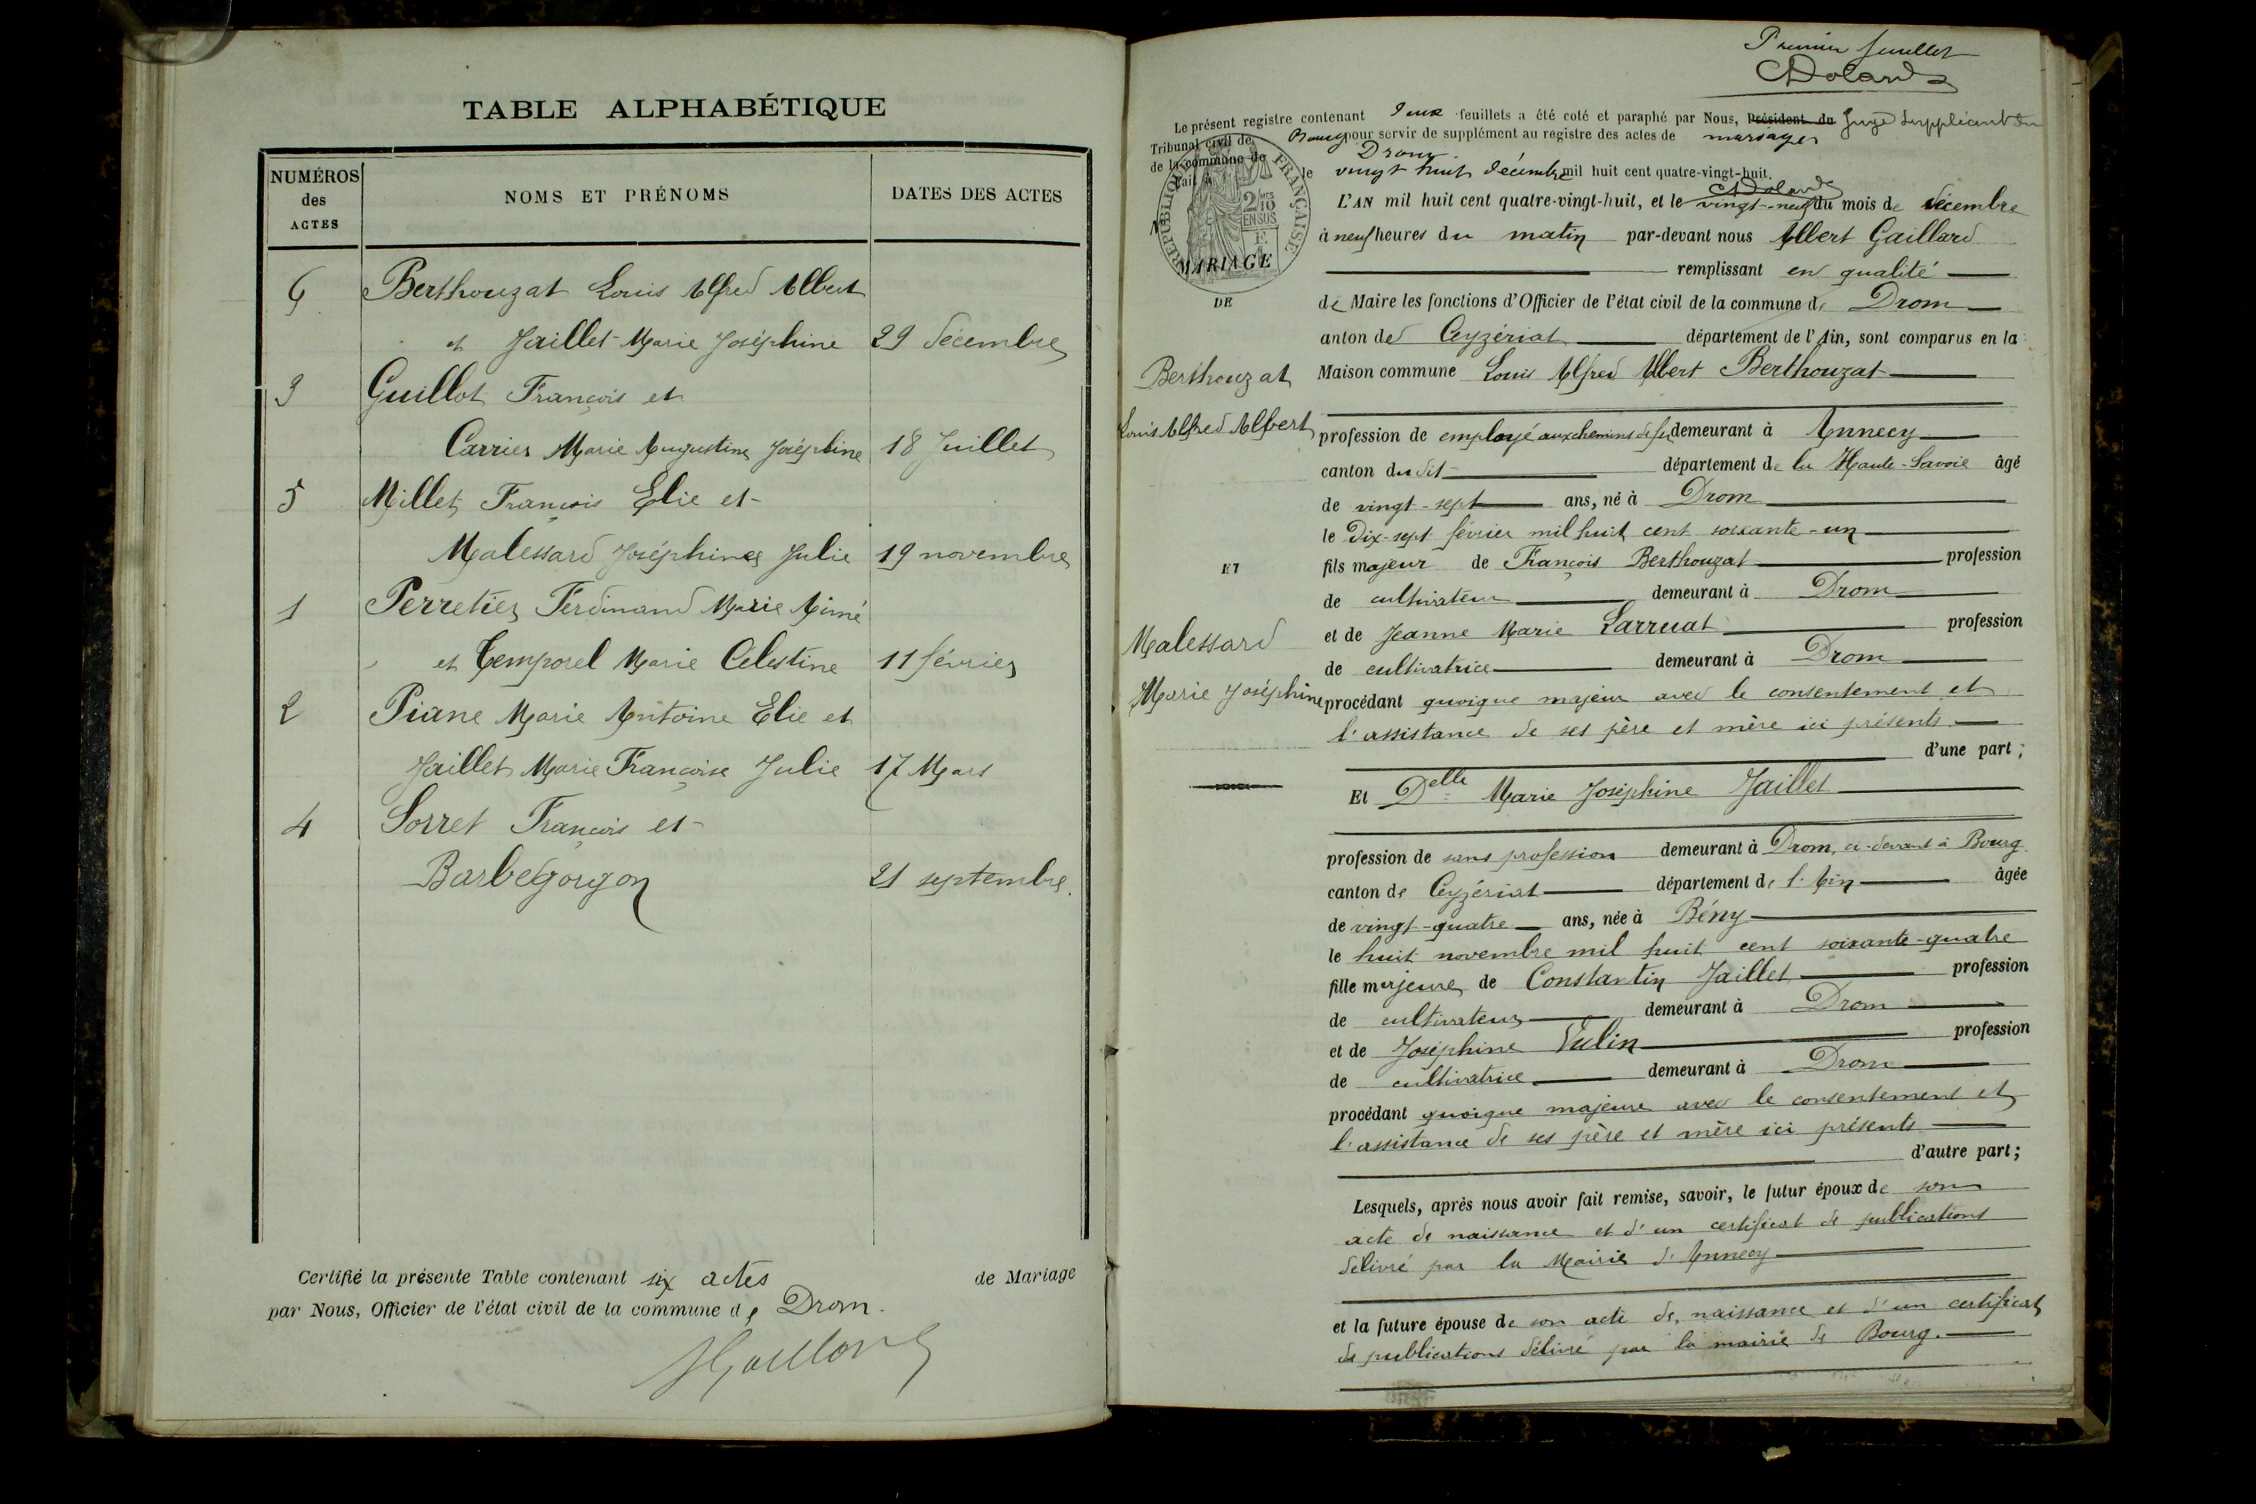 TABLE ALPHABÉTIQUE
NUMÉROS des ACTES
NOMS ET PRÉNOMS
DATES DES ACTES
6 Berthouzat Louis Alfred Albert
et Jaillet Marie Joséphine 29 décembre
3 Guillot François et
Carrier Marie Augustine Joséphine 18 Juillet
5 Millet François Elie et
Malessard Joséphine Julie 19 novembre
1 Perretier Ferdinand Marie Aimé
et Temporel Marie Célestine 11 février
2 Piane Marie Antoine Elie et
Jaillet Marie Françoise Julie 17 Mars
4 Sorret François et
Barbe Gorgon 21 septembre.
Certifié la présente Table contenant six actes de Mariage
par Nous, Officier de l'état civil de la commune de Drom.
Premier feuillet
Le présent registre contenant deux feuillets a été coté et paraphé par Nous, Président du Juge Suppléant du
Tribunal civil de Bourg pour servir de supplément au registre des actes de mariages
de la commune de Drom
Fait à le vingt huit décembre mil huit cent quatre-vingt-huit.
RÉPUBLIQUE FRANÇAISE
2/10 EN SUS
MARIAGE
DE
Berthouzat
Louis Alfred Albert
ET
Malessard
Marie Joséphine
L'AN mil huit cent quatre-vingt-huit, et le vingt-neuf du mois de décembre
à neuf heures du matin par-devant nous Albert Gaillard
remplissant en qualité
de Maire les fonctions d'Officier de l'état civil de la commune de Drom
anton de Ceyzériat département de l'Ain, sont comparus en la
Maison commune Louis Alfred Albert Berthouzat
profession de employé aux chemins de fer demeurant à Annecy
canton du dit département de la Haute-Savoie âgé
de vingt-sept ans, né à Drom
le Dix-sept février mil huit cent soixante-un
fils majeur de François Berthouzat profession
de cultivateur demeurant à Drom
et de Jeanne Marie Larruat profession
de cultivatrice demeurant à Drom
procédant quoique majeur avec le consentement et
l'assistance de ses père et mère ici présents
d'une part ;
Et Delle Marie Joséphine Jaillet
profession de sans profession demeurant à Drom, ci-devant à Bourg
canton de Ceyzériat département de l'Ain âgée
de vingt-quatre ans, née à Bény
le huit novembre mil huit cent soixante-quatre
fille majeure de Constantin Jaillet profession
de cultivateur demeurant à Drom
et de Joséphine Vulin profession
de cultivatrice demeurant à Drom
procédant quoique majeure avec le consentement et
l'assistance de ses père et mère ici présents
d'autre part ;
Lesquels, après nous avoir fait remise, savoir, le futur époux de son
acte de naissance et d'un certificat de publications
délivré par la Mairie d'Annecy
et la future épouse de son acte de naissance et d'un certificat
de publications délivré par la mairie de Bourg.